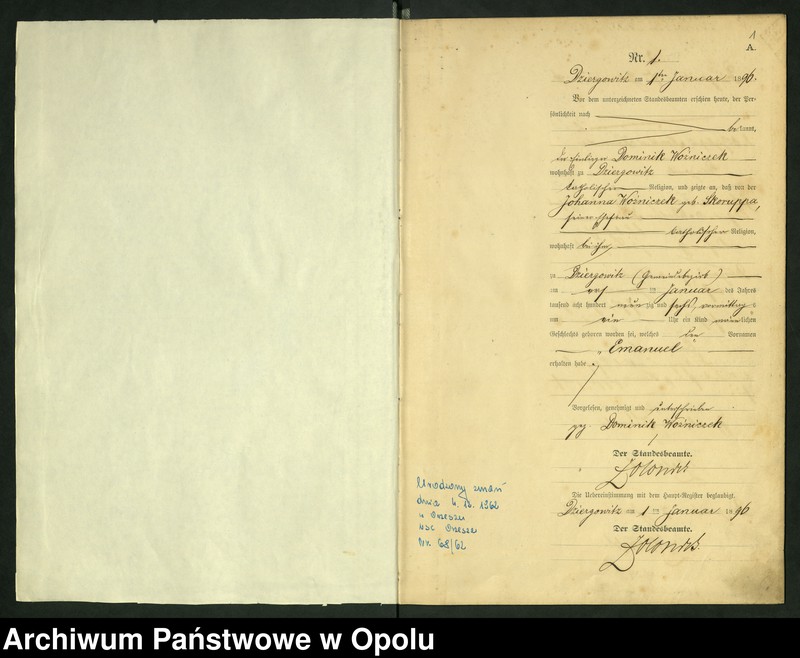 1
A.
Nr. 1.
Dziergowitz am 1ten Januar 1896.
Vor dem unterzeichneten Standesbeamten erschien heute, der Per-
sönlichkeit nach
bekannt,
der Dominik Wozniczek
wohnhaft zu Dziergowitz
katholischer Religion, und zeigte an, daß von der
Johanna Wozniczek geb. Skoruppa,
seiner Ehefrau
katholischer Religion,
wohnhaft bei ihm
zu Dziergowitz (Gemeindebezirk)
am ten Januar des Jahres
tausend acht hundert neunzig und sechs, vormittags
um ein Uhr ein Kind männlichen
Geschlechts geboren worden sei, welches den Vornamen
Emanuel
erhalten habe.
Vorgelesen, genehmigt und unterschrieben
gez. Dominik Wozniczek
Der Standesbeamte.
Die Uebereinstimmung mit dem Haupt-Register beglaubigt.
Dziergowitz am 1 ten Januar 1896
Der Standesbeamte.
Urodzony zmarł
dnia 6. 1962
w Orzeszu
USC Orzesze
Nr. 68/62
Archiwum Państwowe w Opolu